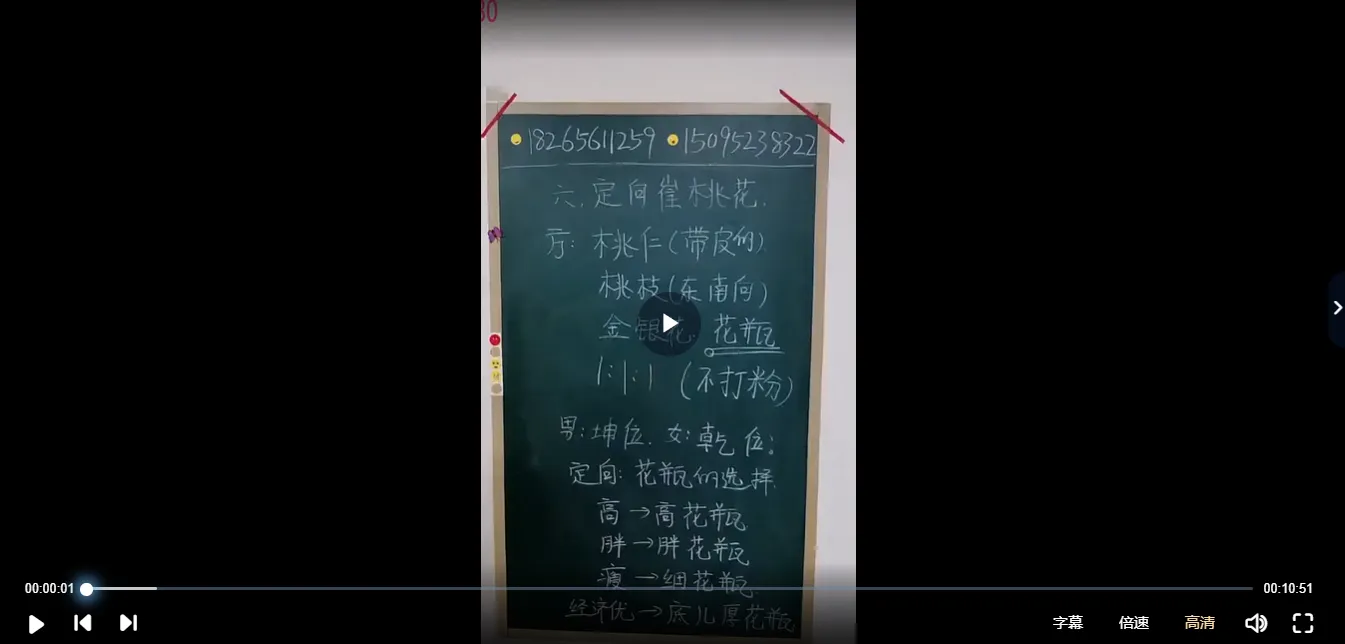 30
18265611259 15095238322
六.定向崔桃花.
方:桃仁(带皮的)
桃枝(东南向)
金银花.花瓶
1:1:1 (不打粉)
男:坤位.女:乾位:
定向:花瓶的选择.
高→高花瓶
胖→胖花瓶
瘦→细花瓶.
经济优→底儿厚花瓶
00:00:01 00:10:51
字幕 倍速 高清